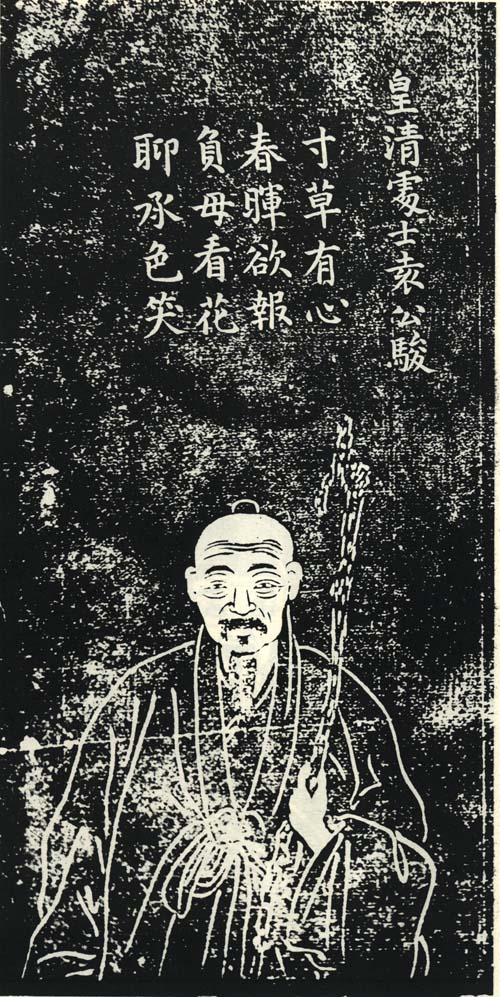 皇清處士袁公駿
寸草有心
春暉欲報
負母看花
聊承色笑